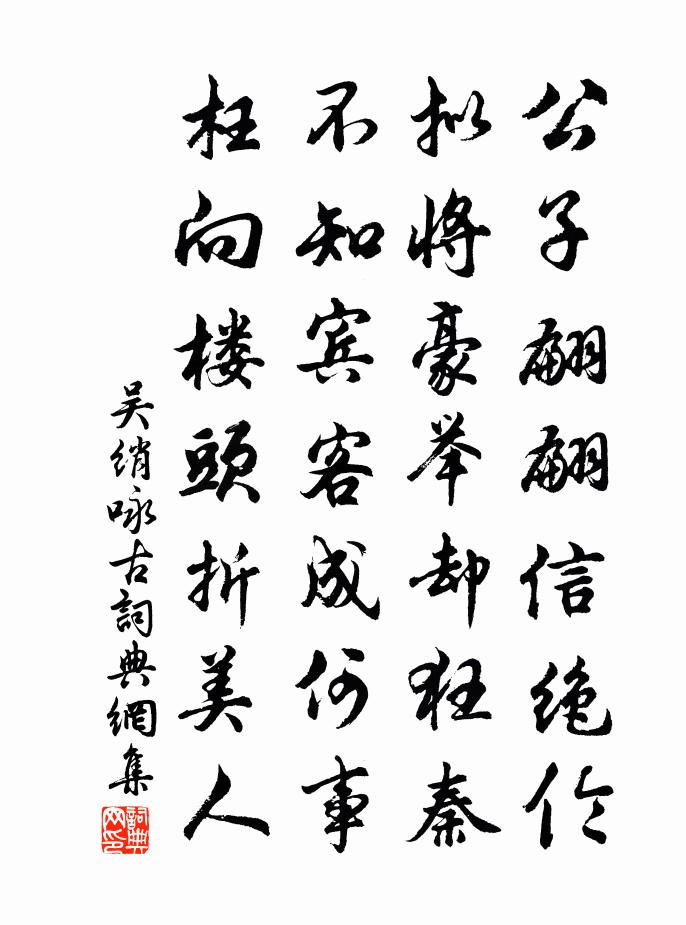 公子翩翩信绝伦
拟将豪举却狂秦
不知宾客成何事
枉向楼頭折美人
吴绡咏古詞典網集
詞典网印